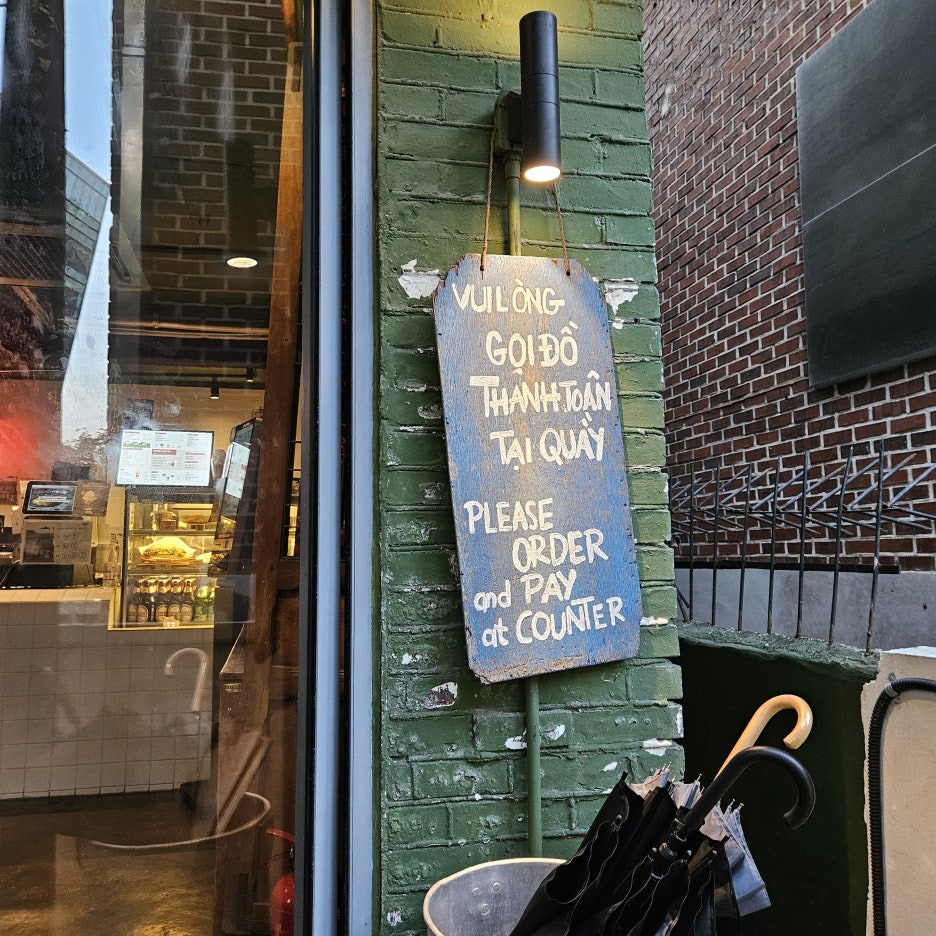 VUI LÒNG
GỌI ĐỒ
THANH TOÁN
TẠI QUẦY
PLEASE
ORDER
and PAY
at COUNTER